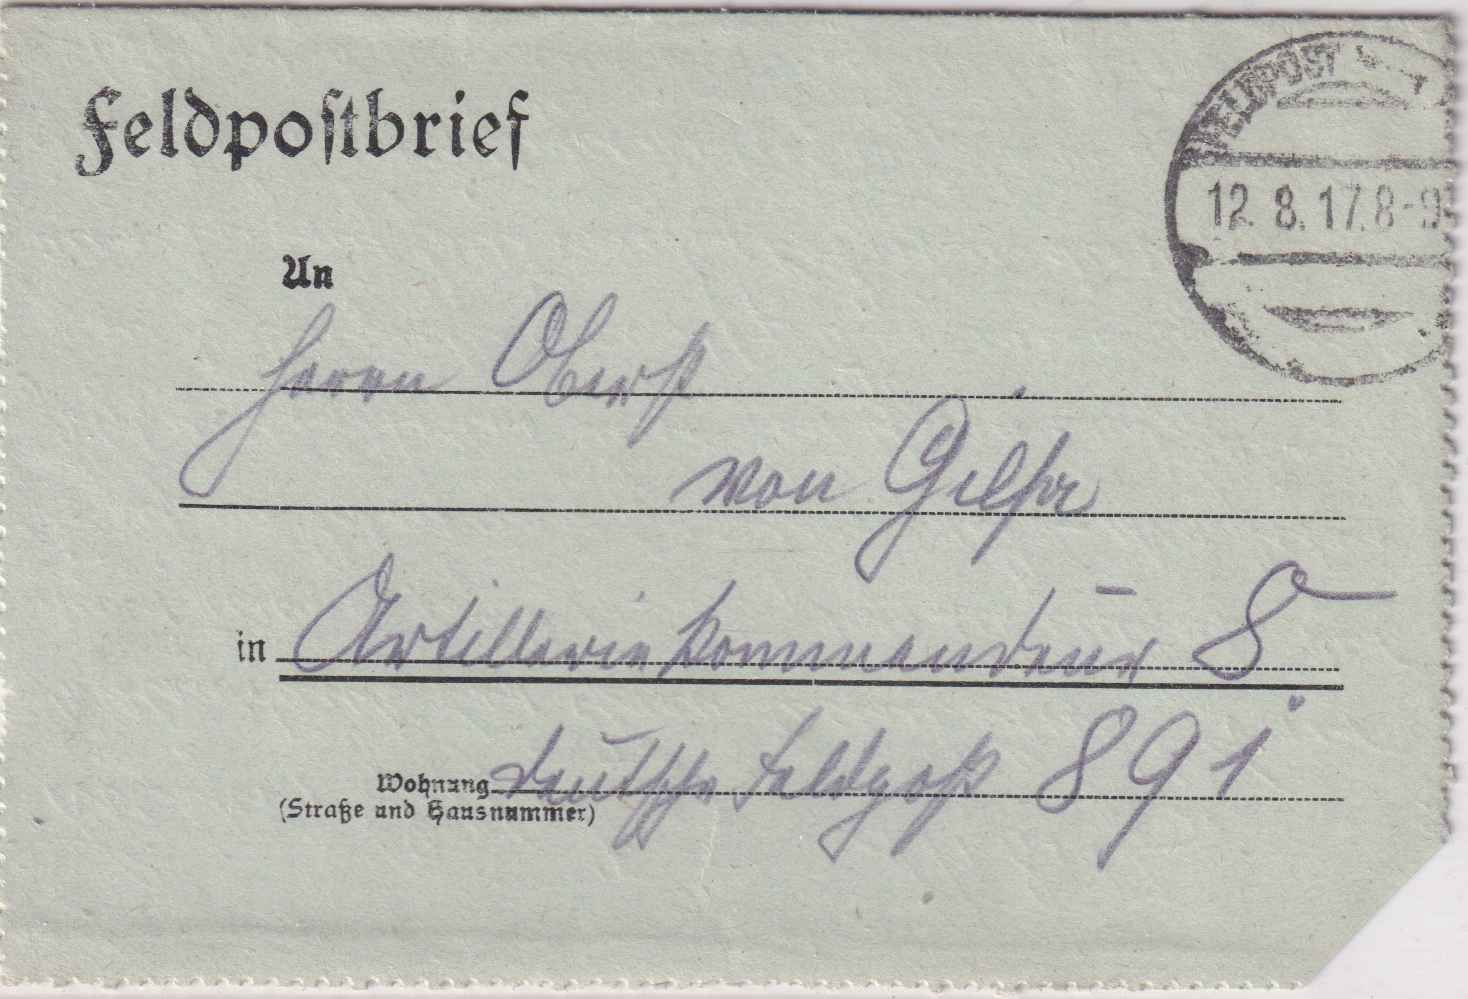 Feldpostbrief
FELDPOST
12.8.17.8-9
An
Herrn Oberst
von
in Artilleriekommandeur 8
Wohnung deutsche Feldpost 891
(Straße und Hausnummer)